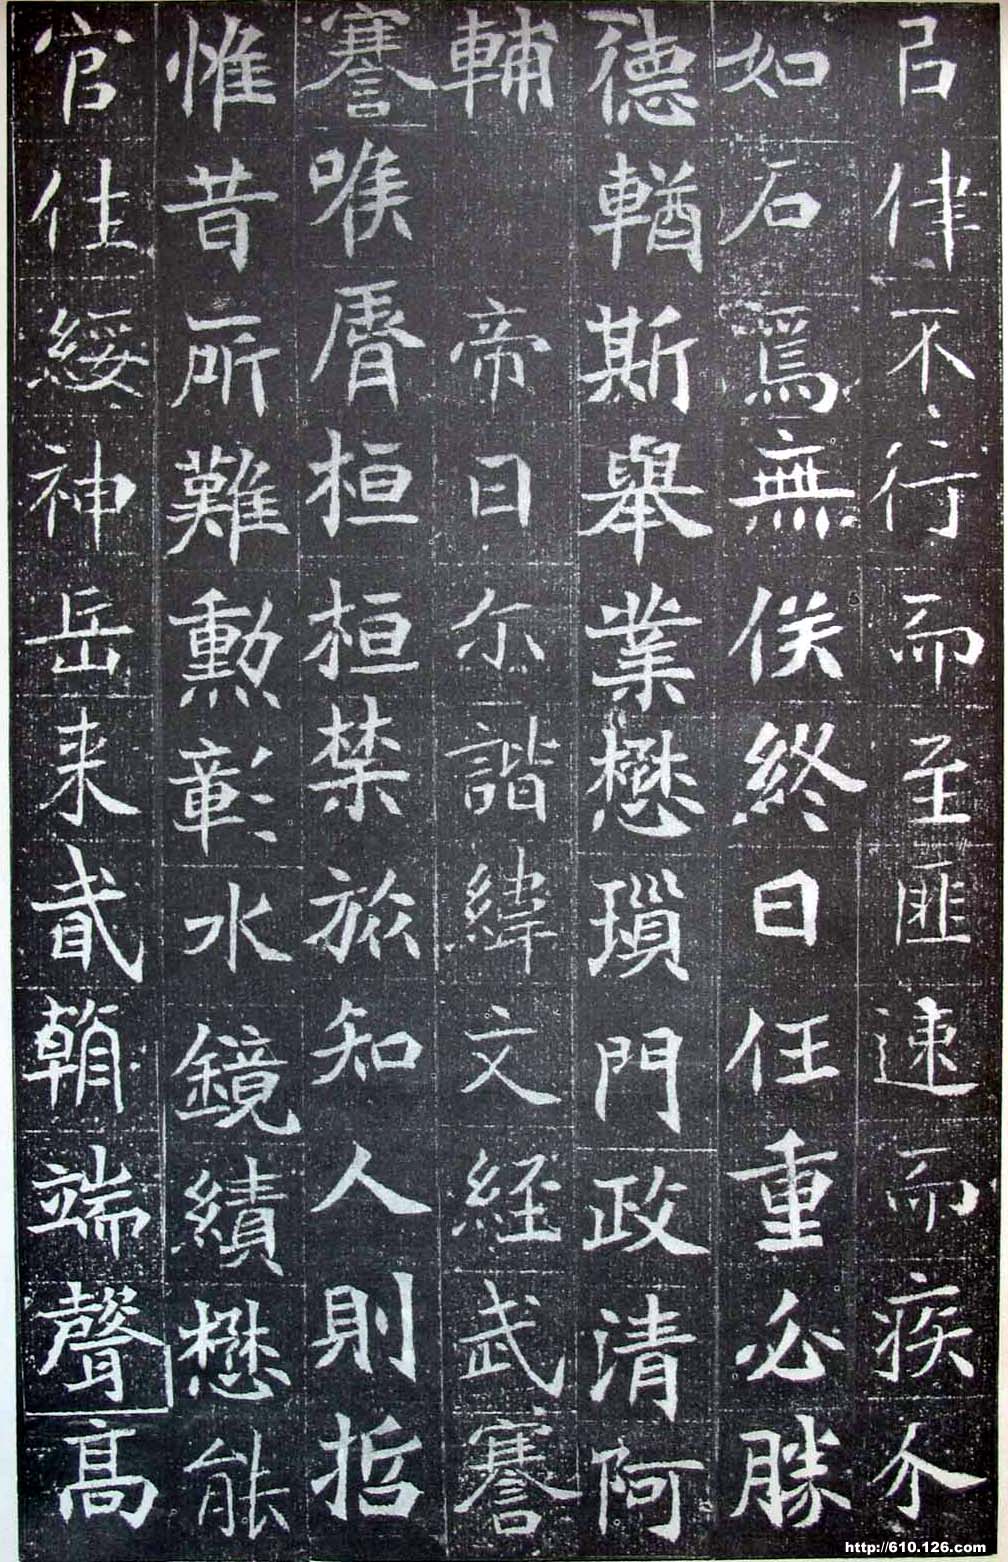 吕律不行而至匪速而疾介
如石焉無俟終日任重必勝
德輶斯舉業懋瑣門政清阿
輔 帝曰尔諧緯文経武謇
謇喉脣桓桓禁旅知人則哲
惟昔所難勳彰水鏡績懋能
官仕綏神岳来貳輶端聲高
http://610.126.com